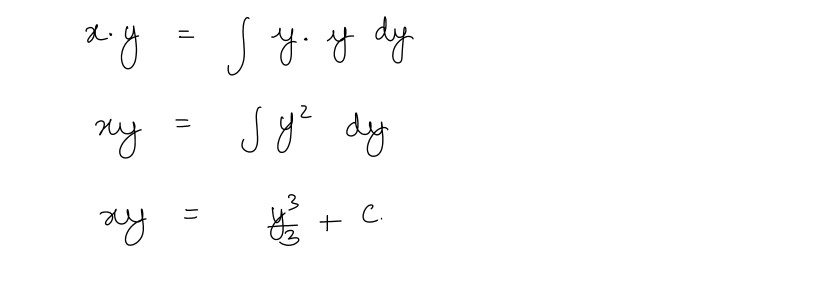 x·y = ∫ y·y dy
xy = ∫ y² dy
xy = y³/3 + c.